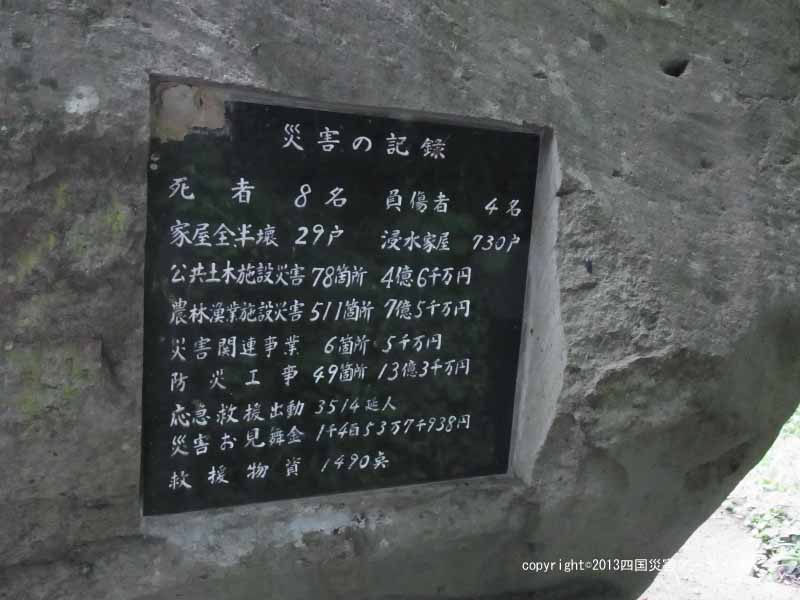 災害の記録
死者 8名 負傷者 4名
家屋全半壊 29戸 浸水家屋 730戸
公共土木施設災害 78箇所 4億6千万円
農林漁業施設災害 511箇所 7億5千万円
災害関連事業 6箇所 5千万円
防災工事 49箇所 13億3千万円
応急救援出動 3514延人
災害お見舞金 1千4百53万7千938円
救援物資 1490点
copyright©2013四国災害アーカイブス